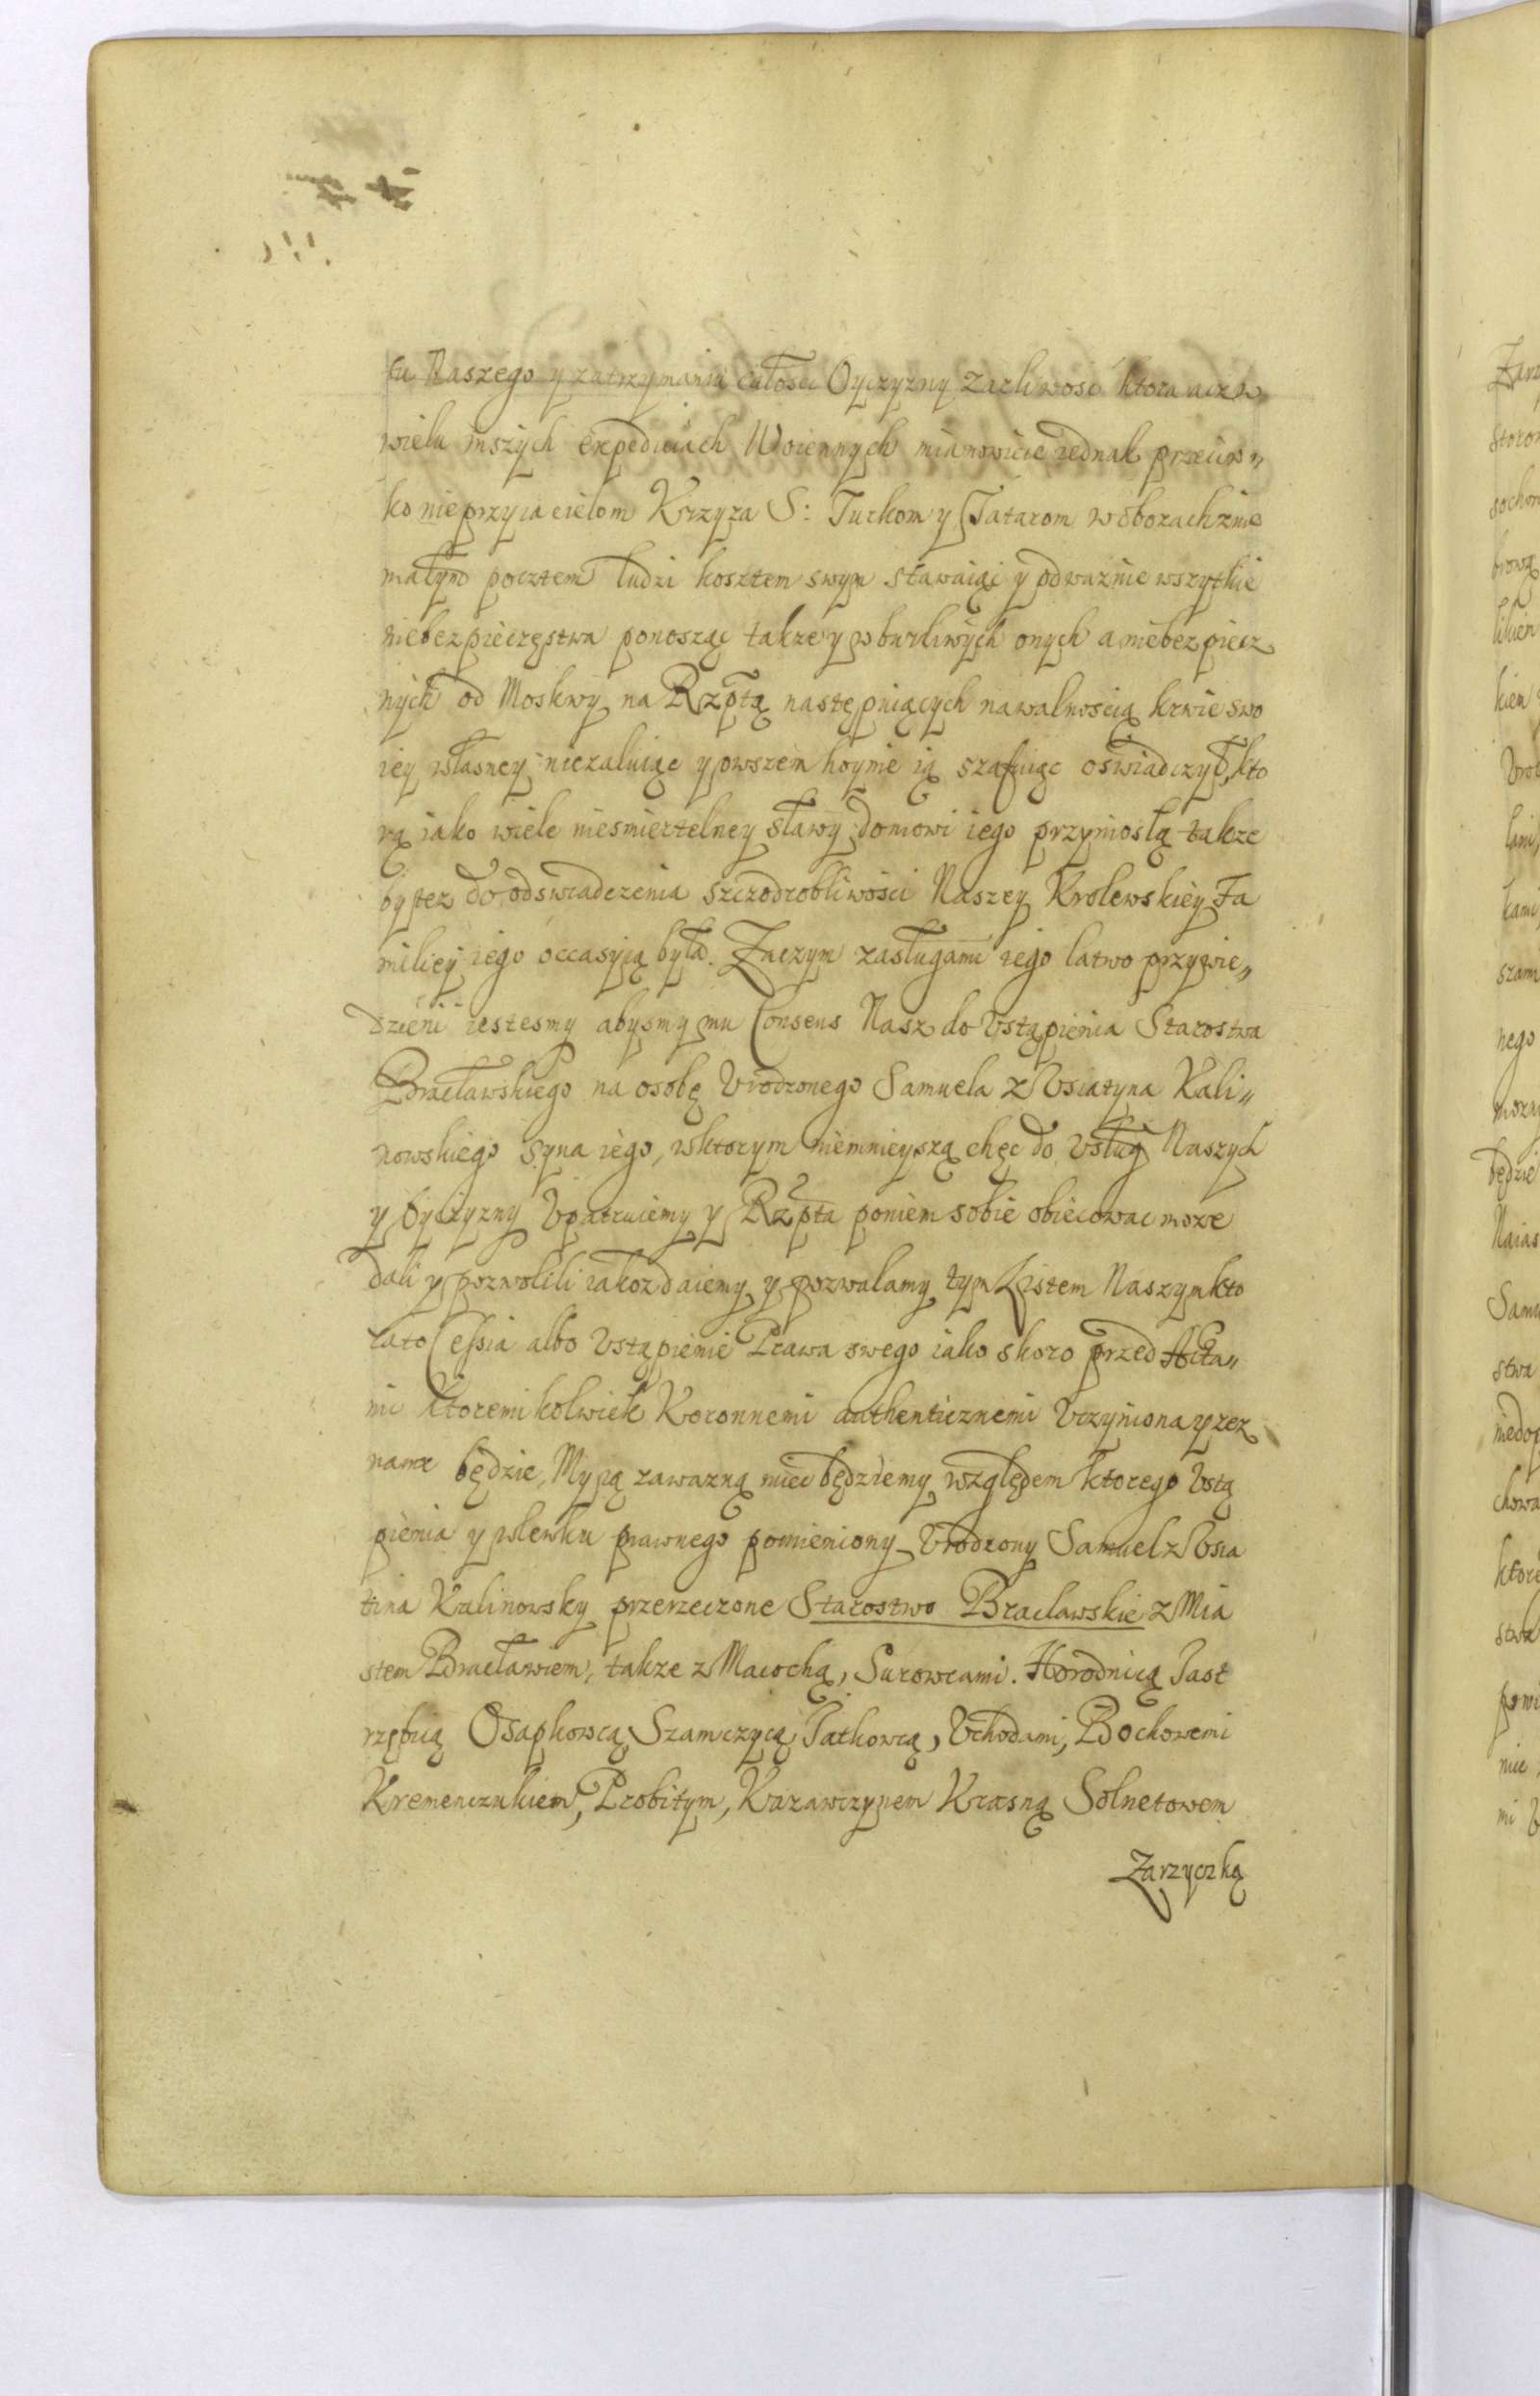 tu Naszego y zatrzymania całosci Oyczyzny zarliwosc ktora acz w
wielu inszych expediciach Woiennych mianowicie iednak przeciw„
ko nieprzyiacielom Krzyza S: Turkom y Tatarom w obozach z nie
małym pocztem ludzi kosztem swym stawaiąc y odwaznie wszytkie
niebezpieczęstwa ponosząc takze y w burliwych onych a niebezpiecz
nych od Moskwy na Rzptą następuiących nawalnoscią krwie swo
iey własney niezaluiąc y owszem hoynie ią szafuiąc oswiadczył, kto
rą iako wiele niesmiertelney sławy domowi iego przyniosłą takze
by tez do odswiadczenia szczodrobliwosci Naszey Krolewskiey Fa
miliey iego occasyią była. Zaczym zasługami iego latwo przywie„
dzieni iestesmy abysmy mu Consens Nasz do Vstąpienia Starostwa
Bracławskiego na osobę Vrodzonego Samuela z Vsiatyna Kali„
nowskiego syna iego, w ktorym niemnieyszą chęc do Vsług Naszych
y Oyczyzny Vpatruiemy y Rzpta po niem sobie obiecowac moze
dali y pozwolili iakoz daiemy y pozwalamy tym Listem Naszym kto
rato Cessia albo Vstąpienie Prawa swego iako skoro przed Acta„
mi ktoremi kolwiek Koronnemi authenticznemi Vczyniona y zez
nana będzie, My ią zawazną miec będziemy względem ktorego Vstą
pienia y wlewku prawnego pomieniony Vrodzony Samuel z Vsia
tina Kalinowsky przerzeczone Starostwo Braclawskie z Mia
stem Bracławiem, takze z Macochą, Surowcami. Horodnicą Jast
rzębią Osapkowcą Szamczycą Jatkowcą, Vchodami, Bochowemi
Kremenczukiem, Probitym, Kazawczynem Krasną Solnetowem
Zarzyczką